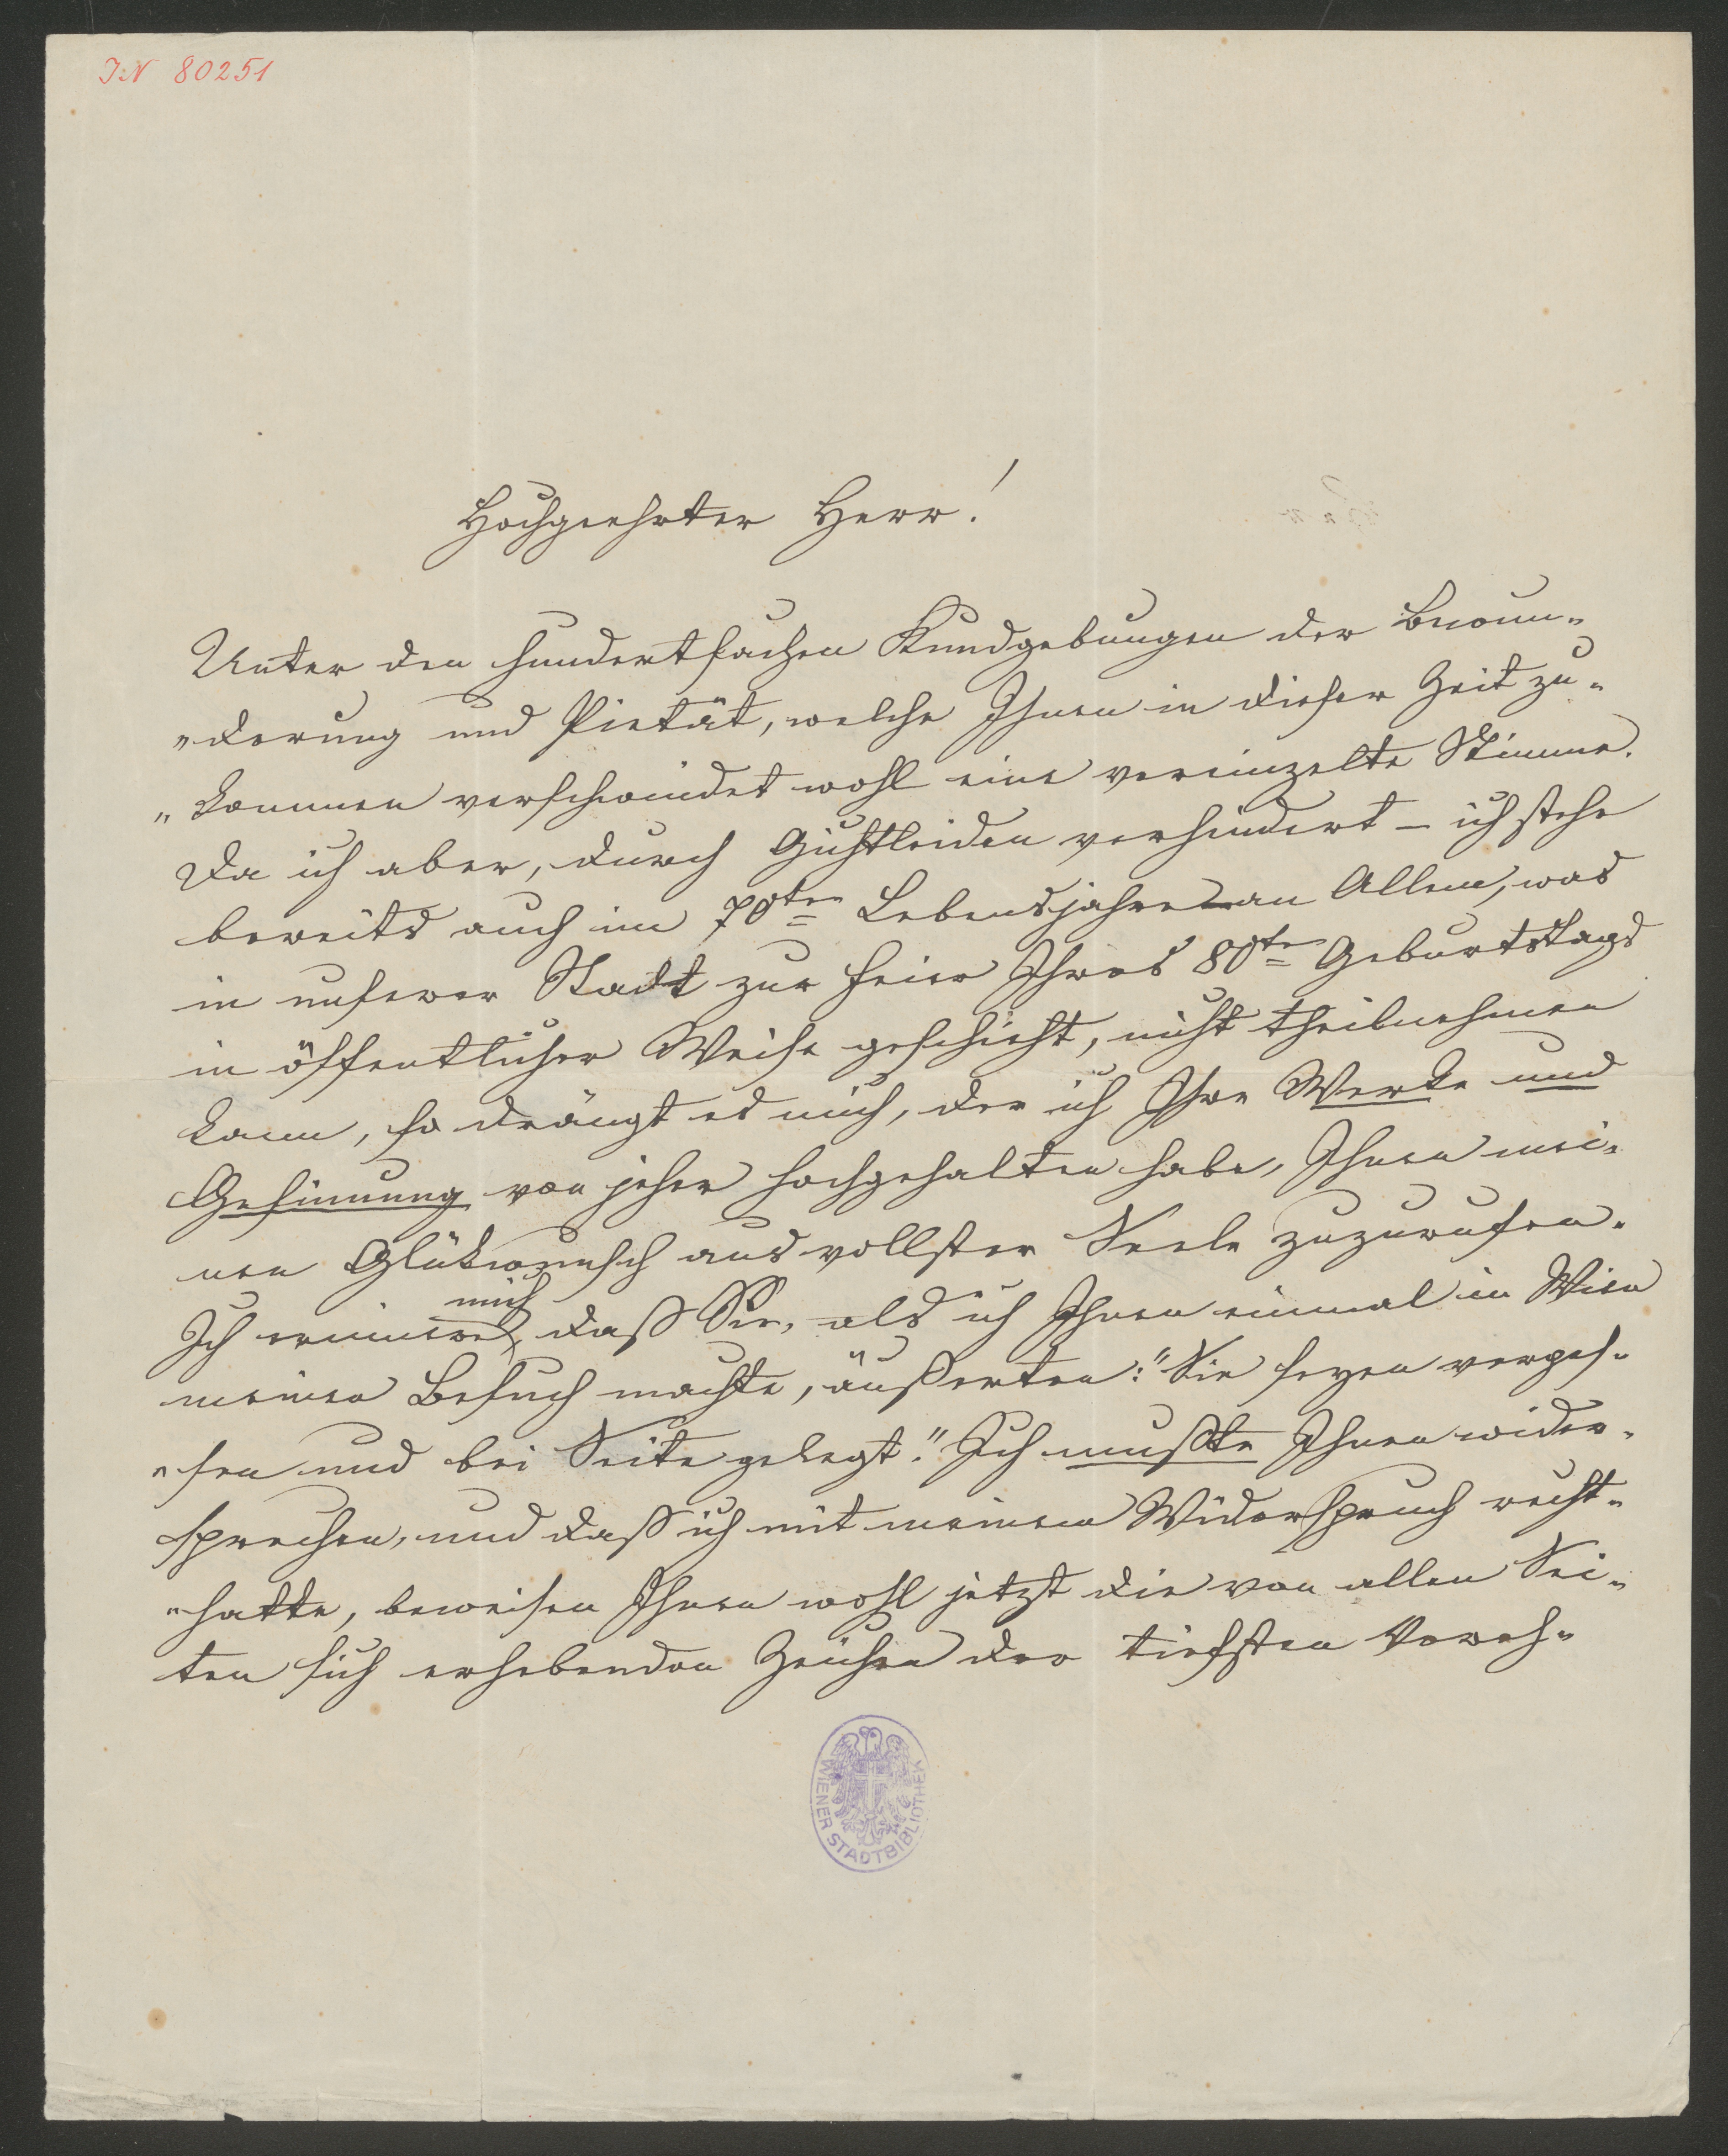 IN 80251
Hochgeehrter Herr!
Unter den hundertfachen Kundgebungen der Bewun-
"derung und Pietät, welche Ihnen in dieser Zeit zu-
"kommen verschwindet wohl eine vereinzelte Stimme.
Da ich aber, durch Gichtleiden verhindert – ich stehe
bereits auch im 70ten Lebensjahre – an Allem, was
in unserer Stadt zur Feier Ihres 80ten Geburtstags
in öffentlicher Weise geschieht, nicht theilnehmen
kann, so drängt es mich, der ich Ihre Werke und
Gesinnung von jeher hochgehalten habe, Ihnen mei-
nen Glükwunsch aus vollster Seele zuzurufen.
mich
Ich erinnere, daß Sie, als ich Ihnen einmal in Wien
meinen Besuch machte, äußerten: "Sie seyen verges-
"sen und bei Seite gelegt." Ich mußte Ihnen wider-
sprechen, und daß ich mit meinem Widerspruch recht-
"hatte, beweisen Ihnen wohl jetzt die von allen Sei-
ten sich erhebenden Zeichen der tiefsten Vereh-
WIENER STADTBIBLIOTHEK